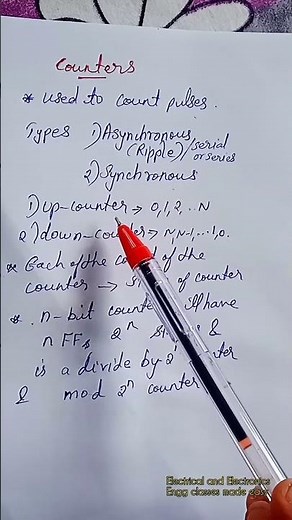 Counters
* used to count pulses.
Types 1) Asynchronous
(Ripple)/serial
or series
2) Synchronous
1) up-counter → 0, 1, 2, ..N
2) down-counter → N, N-1, ...1, 0.
* Each of the count of the
counter → of counter
* n-bit have
n FFs 2ⁿ &
is a divide by 2
& mod 2ⁿ counter
Electrical and Electronics
Engg classes made easy